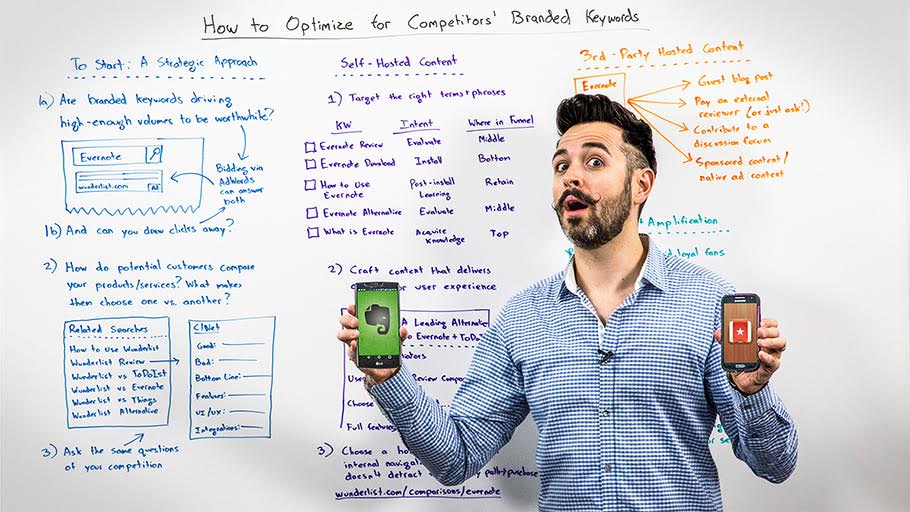 How to Optimize for Competitors' Branded Keywords
To Start: A Strategic Approach
1a) Are branded keywords driving
high-enough volumes to be worthwhile?
Evernote
wunderlist.com Ad
Bidding via
AdWords
can answer
both
1b) And can you draw clicks away?
2) How do potential customers compare
your products/services? What makes
them choose one vs. another?
Related Searches
How to Use Wunderlist
Wunderlist Review
Wunderlist vs ToDoIst
Wunderlist vs Evernote
Wunderlist vs Things
Wunderlist Alternative
C|Net
Good:
Bad:
Bottom Line:
Features:
UI/UX:
Integrations:
3) Ask the same questions
of your competition
Self-Hosted Content
1) Target the right terms+phrases
KW Intent Where in Funnel
Evernote Review Evaluate Middle
Evernote Download Install Bottom
How to Use Evernote Post-install Learning Retain
Evernote Alternative Evaluate Middle
What is Evernote Acquire Knowledge Top
2) Craft content that delivers
user experience
A Leading Alternate
to Evernote + ToDo
Review Compa
Choose
Full feature
3) Choose a
internal naviga
doesn't detract path+purchase
wunderlist.com/comparisons/evernote
3rd-Party Hosted Content
Evernote
Guest blog post
Pay an external
reviewer (or just ask!)
Contribute to a
discussion forum
Sponsored content/
native ad content
Amplification
loyal fans
LG
SAMSUNG